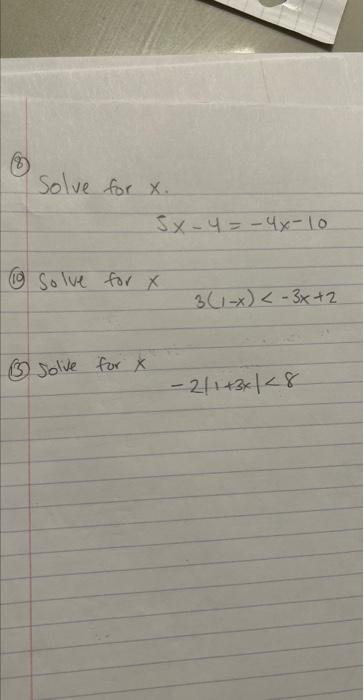 ⑧
Solve for x.
5x-4=-4x-10
⑩ Solve for x
3(1-x)<-3x+2
⑬ Solve for x
-2|1+3x|<8